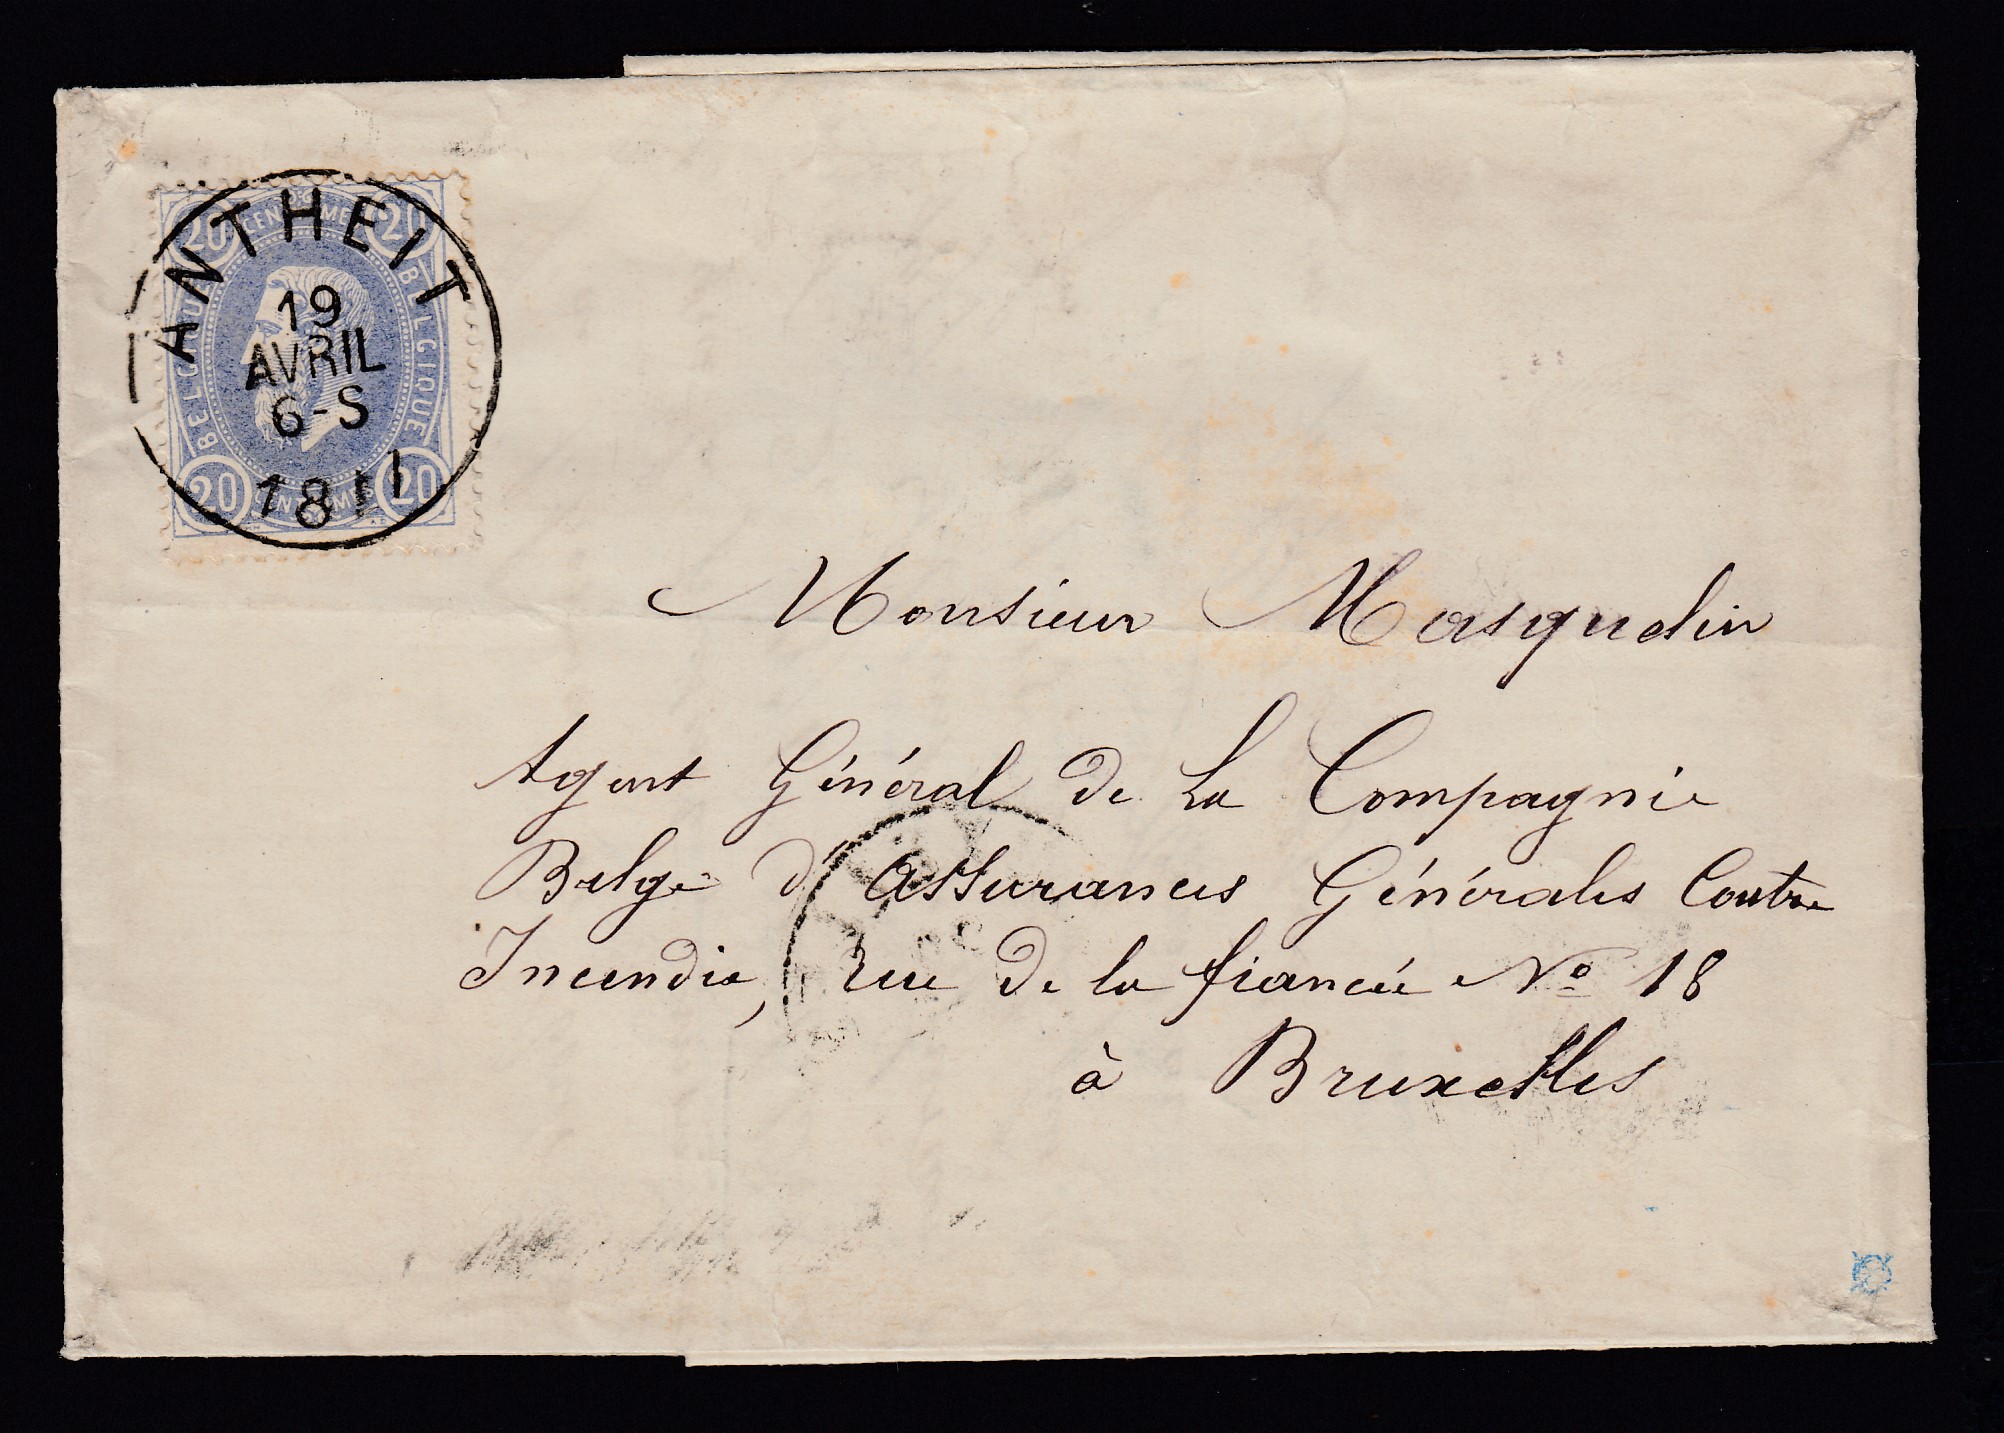 ANTHEIT
19
AVRIL
6-S
18
20 CENTIMES 20
BELGIQUE
BELGIQUE
20 CENTIMES 20
Monsieur Masquelin
Agent Général de La Compagnie
Belge d'assurances Générales Contre
Incendie, rue de la fiancée No 18
à Bruxelles